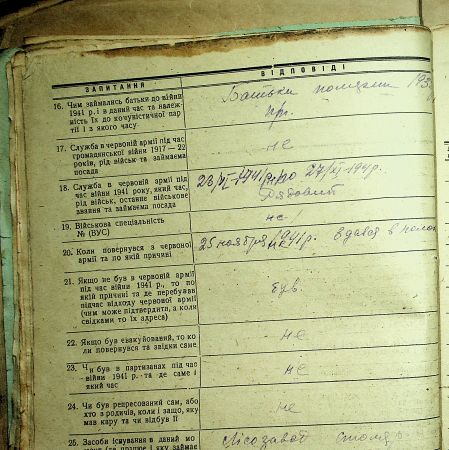 ЗАПИТАННЯ
ВІДПОВІДІ
16. Чим займались батьки до війни
1941 р. і в даний час та належ-
ність їх до комуністичної пар-
тії і з якого часу
Батьки померли 193
рр.
17. Служба в червоній армії під час
громадянської війни 1917—22
років, рід військ та займаєма
посада
не
18. Служба в червоній армії під
час війни 1941 року, який час,
рід військ, останнє військове
звання та займаєма посада
Рядовий
19. Військова спеціальність
№ (ВУС)
не
20. Коли повернувся з червоної
армії та по якій причині
25 ноября 1941 р. здавая в
21. Якщо не був в червоній армії
під час війни 1941 р., то по
якій причині та де перебував
підчас відходу червоної армії
(чим може підтвердити, а коли
свідками то їх адреса)
був.
22. Якщо був евакуйований, то ко-
ли повернувся та звідки саме
не
23. Чи був в партизанах під час
війни 1941 р. та де саме і
який час
не
24. Чи був репресований сам, або
хто з родичів, коли і защо, яку
мав кару та чи відбув її
не
25. Засоби існування в даний мо-
Лісозавод столяр